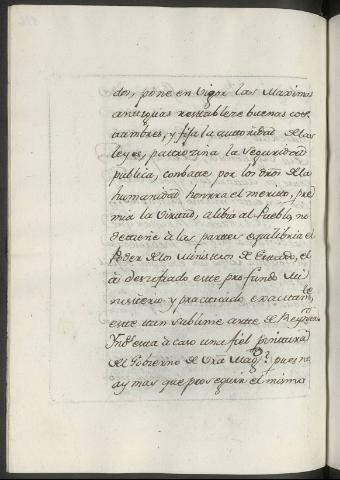 dos, pone en vigor las Maximas
antiguas restableze buenas cos
tumbres, y fixa la autoridad de las
leyes, patrozina la seguridad
publica, conbatte por los dros. de la
humanidad honrra el merito, pre
mia la Virtud, alibia al Pueblo, no
detiene a las parttes equilibria el
Poder de los Ministros de Estado, el
à descifrado este profundo Mi
nisterio y practicado exactam.te
este tan sublime artte de Reynar.
esta a caso una fiel pintura
del Gobierno de Vra Mag.d? pues no
ay mas que proseguir el mismo